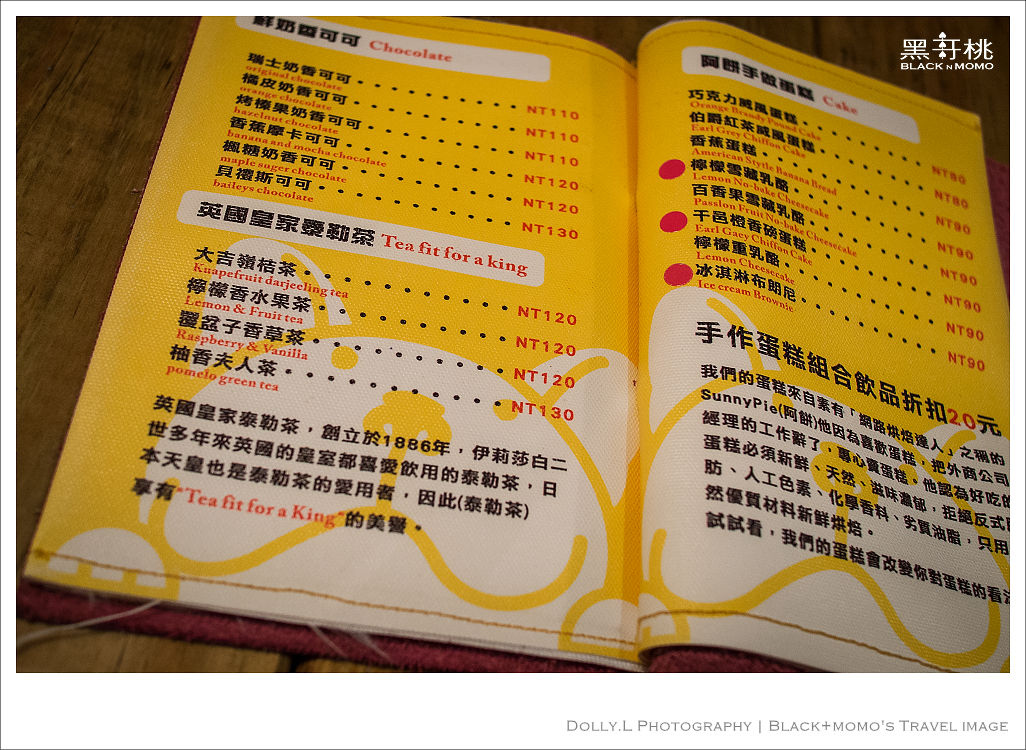 鮮奶香可可 Chocolate
瑞士奶香可可 NT110
original chocolate
橘皮奶香可可 NT110
orange chocolate
烤榛果奶香可可 NT110
hazelnut chocolate
香蕉摩卡可可 NT120
banana and mocha chocolate
楓糖奶香可可 NT120
maple suger chocolate
貝禮斯可可 NT130
baileys chocolate
英國皇家泰勒茶 Tea fit for a king
大吉嶺桔茶 NT120
Kuapefruit darjeeling tea
檸檬香水果茶 NT120
Lemon & Fruit tea
覆盆子香草茶 NT120
Raspberry & Vanilla
柚香夫人茶 NT130
pomelo green tea
英國皇家泰勒茶，創立於1886年，伊莉莎白二
世多年來英國的皇室都喜愛飲用的泰勒茶，日
本天皇也是泰勒茶的愛用者，因此(泰勒茶)
享有"Tea fit for a King"的美譽。
黑軒桃
BLACK N MOMO
阿餅手做蛋糕 Cake
巧克力威風蛋糕 NT80
Orange Brandy Pound Cake
伯爵紅茶威風蛋糕 NT80
Earl Grey Chiffon Cake
香蕉蛋糕 NT90
American Stytle Banana Bread
檸檬雪藏乳酪 NT90
Lemon No-bake Cheesecake
百香果雪藏乳酪 NT90
Passion Fruit No-bake Cheesecake
干邑橙香磅蛋糕 NT90
Earl Gaey Chiffon Cake
檸檬重乳酪 NT90
Lemon Cheesecake
冰淇淋布朗尼 NT90
Ice cream Brownie
手作蛋糕組合飲品折扣20元
我們的蛋糕來自素有「網路烘焙達人」之稱的
SunnyPie(阿餅)他因為喜歡蛋糕，把外商公司
經理的工作辭了，專心賣蛋糕。他認為好吃的
蛋糕必須新鮮、天然、滋味濃郁，拒絕反式
肪、人工色素、化學香料、劣質油脂，只用
然優質材料新鮮烘焙。
試試看，我們的蛋糕會改變你對蛋糕的看法
Dolly.L Photography | Black+momo's Travel image